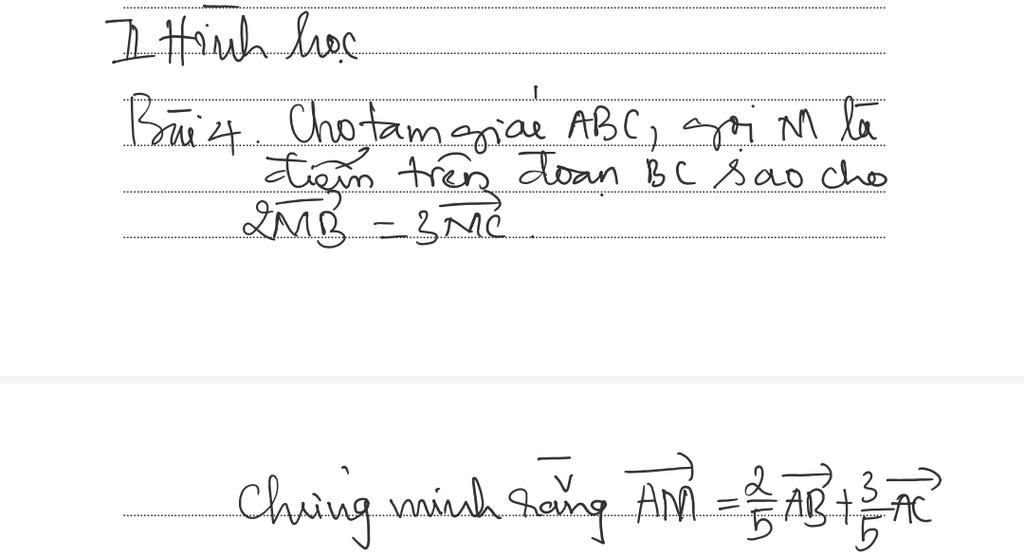 II Hình học
Bài 4. Cho tam giác ABC, gọi M là
điểm trên đoạn BC sao cho
2\overrightarrow{MB} = 3\overrightarrow{MC}.
Chứng minh rằng \overrightarrow{AM} = \frac{2}{5}\overrightarrow{AB} + \frac{3}{5}\overrightarrow{AC}